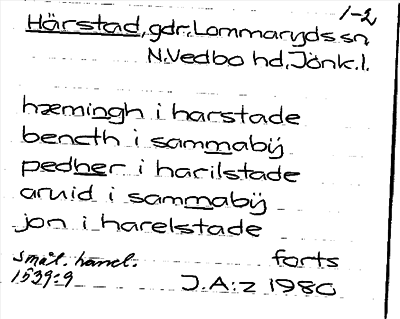 1-2
Härstad, gdr, Lommaryds sn,
N.Vedbo hd, Jönk.l.
hæmingh i harstade
bencth i sammabÿ
pedher i harilstade
aruid i sammabÿ
jon i harelstade
smål. handl. forts
1539:9 J.A:z 1980